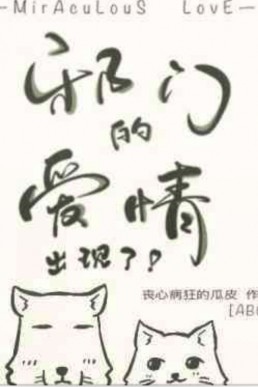 -MirAculouS LovE-
邪门
的
爱情
出现了!
丧心病狂的瓜皮 作
[AB